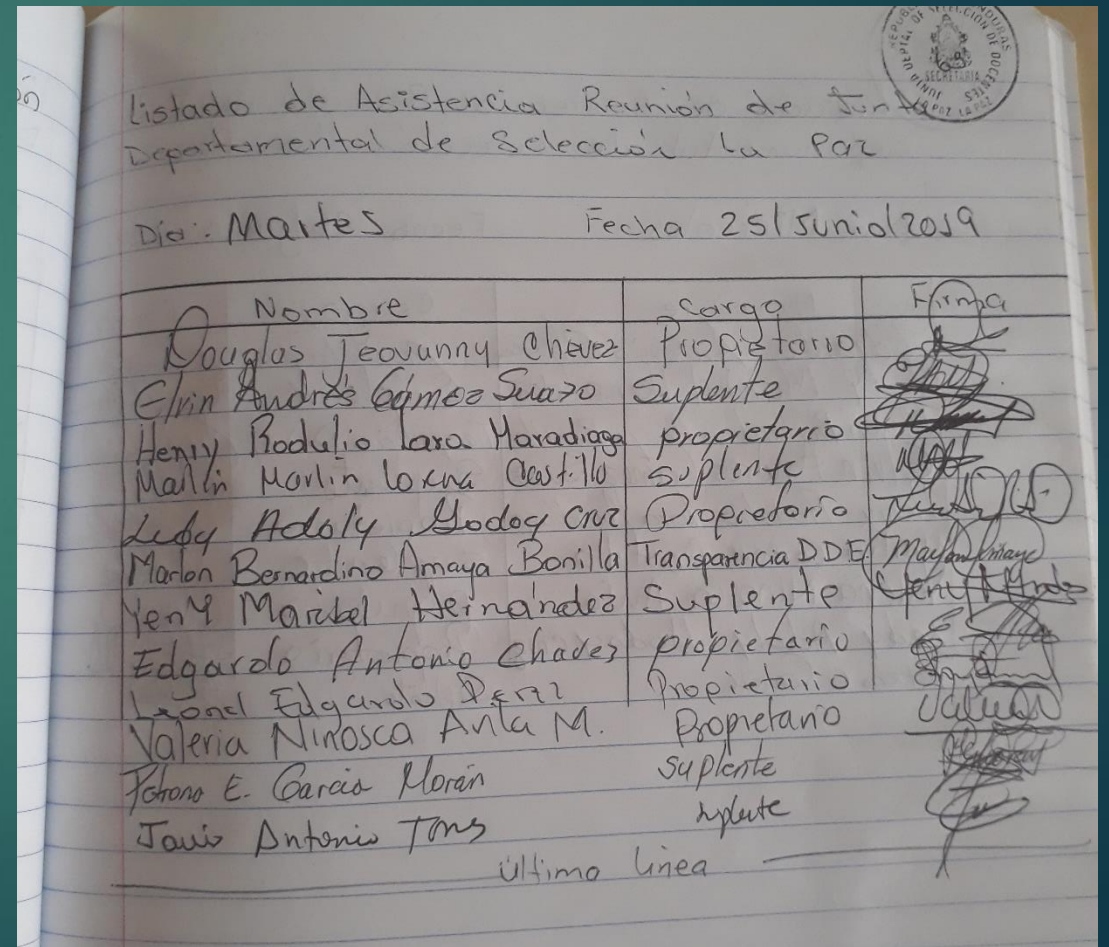 Listado de Asistencia Reunión de Junta
Departamental de Selección La Paz
Dia: Martes Fecha 25/Junio/2019
Nombre Cargo Firma
Douglas Jeovanny Chévez Propietario
Elvin Andrés Gómez Suazo Suplente
Henry Rodulio Lara Maradiaga propietario
Marlin Lorena Castillo suplente
Lesby Adoly Godoy Cruz Propietario
Marlon Bernardino Amaya Bonilla Transparencia DDE
Yeny Maribel Hernández Suplente
Edgardo Antonio Chavez propietario
Leonel Edgardo Perez Propietario
Valeria Ninosca Avila M. Propietario
E. Garcia Morán Suplente
Antonio suplente
Última línea
SECRETARIA